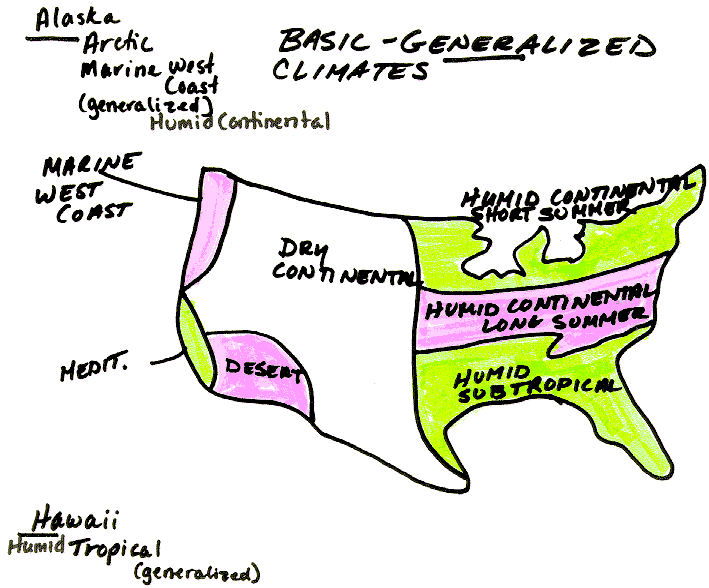 Alaska
Arctic
Marine West
Coast
(generalized)
Humid Continental
BASIC - GENERALIZED
CLIMATES
MARINE
WEST
COAST
HUMID CONTINENTAL
SHORT SUMMER
DRY
CONTINENTAL
HUMID CONTINENTAL
LONG SUMMER
MEDIT.
DESERT
HUMID
SUBTROPICAL
Hawaii
Humid Tropical
(generalized)